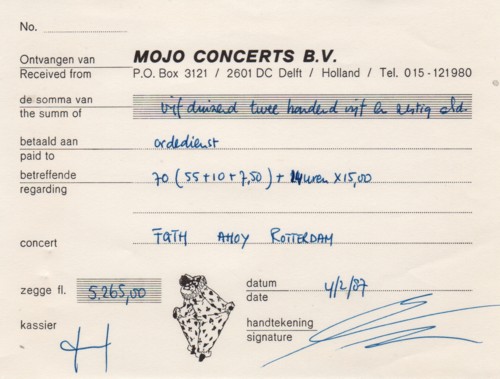 No.
Ontvangen van MOJO CONCERTS B.V.
Received from P.O. Box 3121 / 2601 DC Delft / Holland / Tel. 015-121980
de somma van
the summ of vijf duizend twee honderd vijf en zestig
betaald aan
paid to ordedienst
betreffende
regarding 70 (55+10+7,50) + uren x15,00
concert FGTH AHOY ROTTERDAM
zegge fl. 5.265,00
datum
date 4/2/87
kassier
handtekening
signature